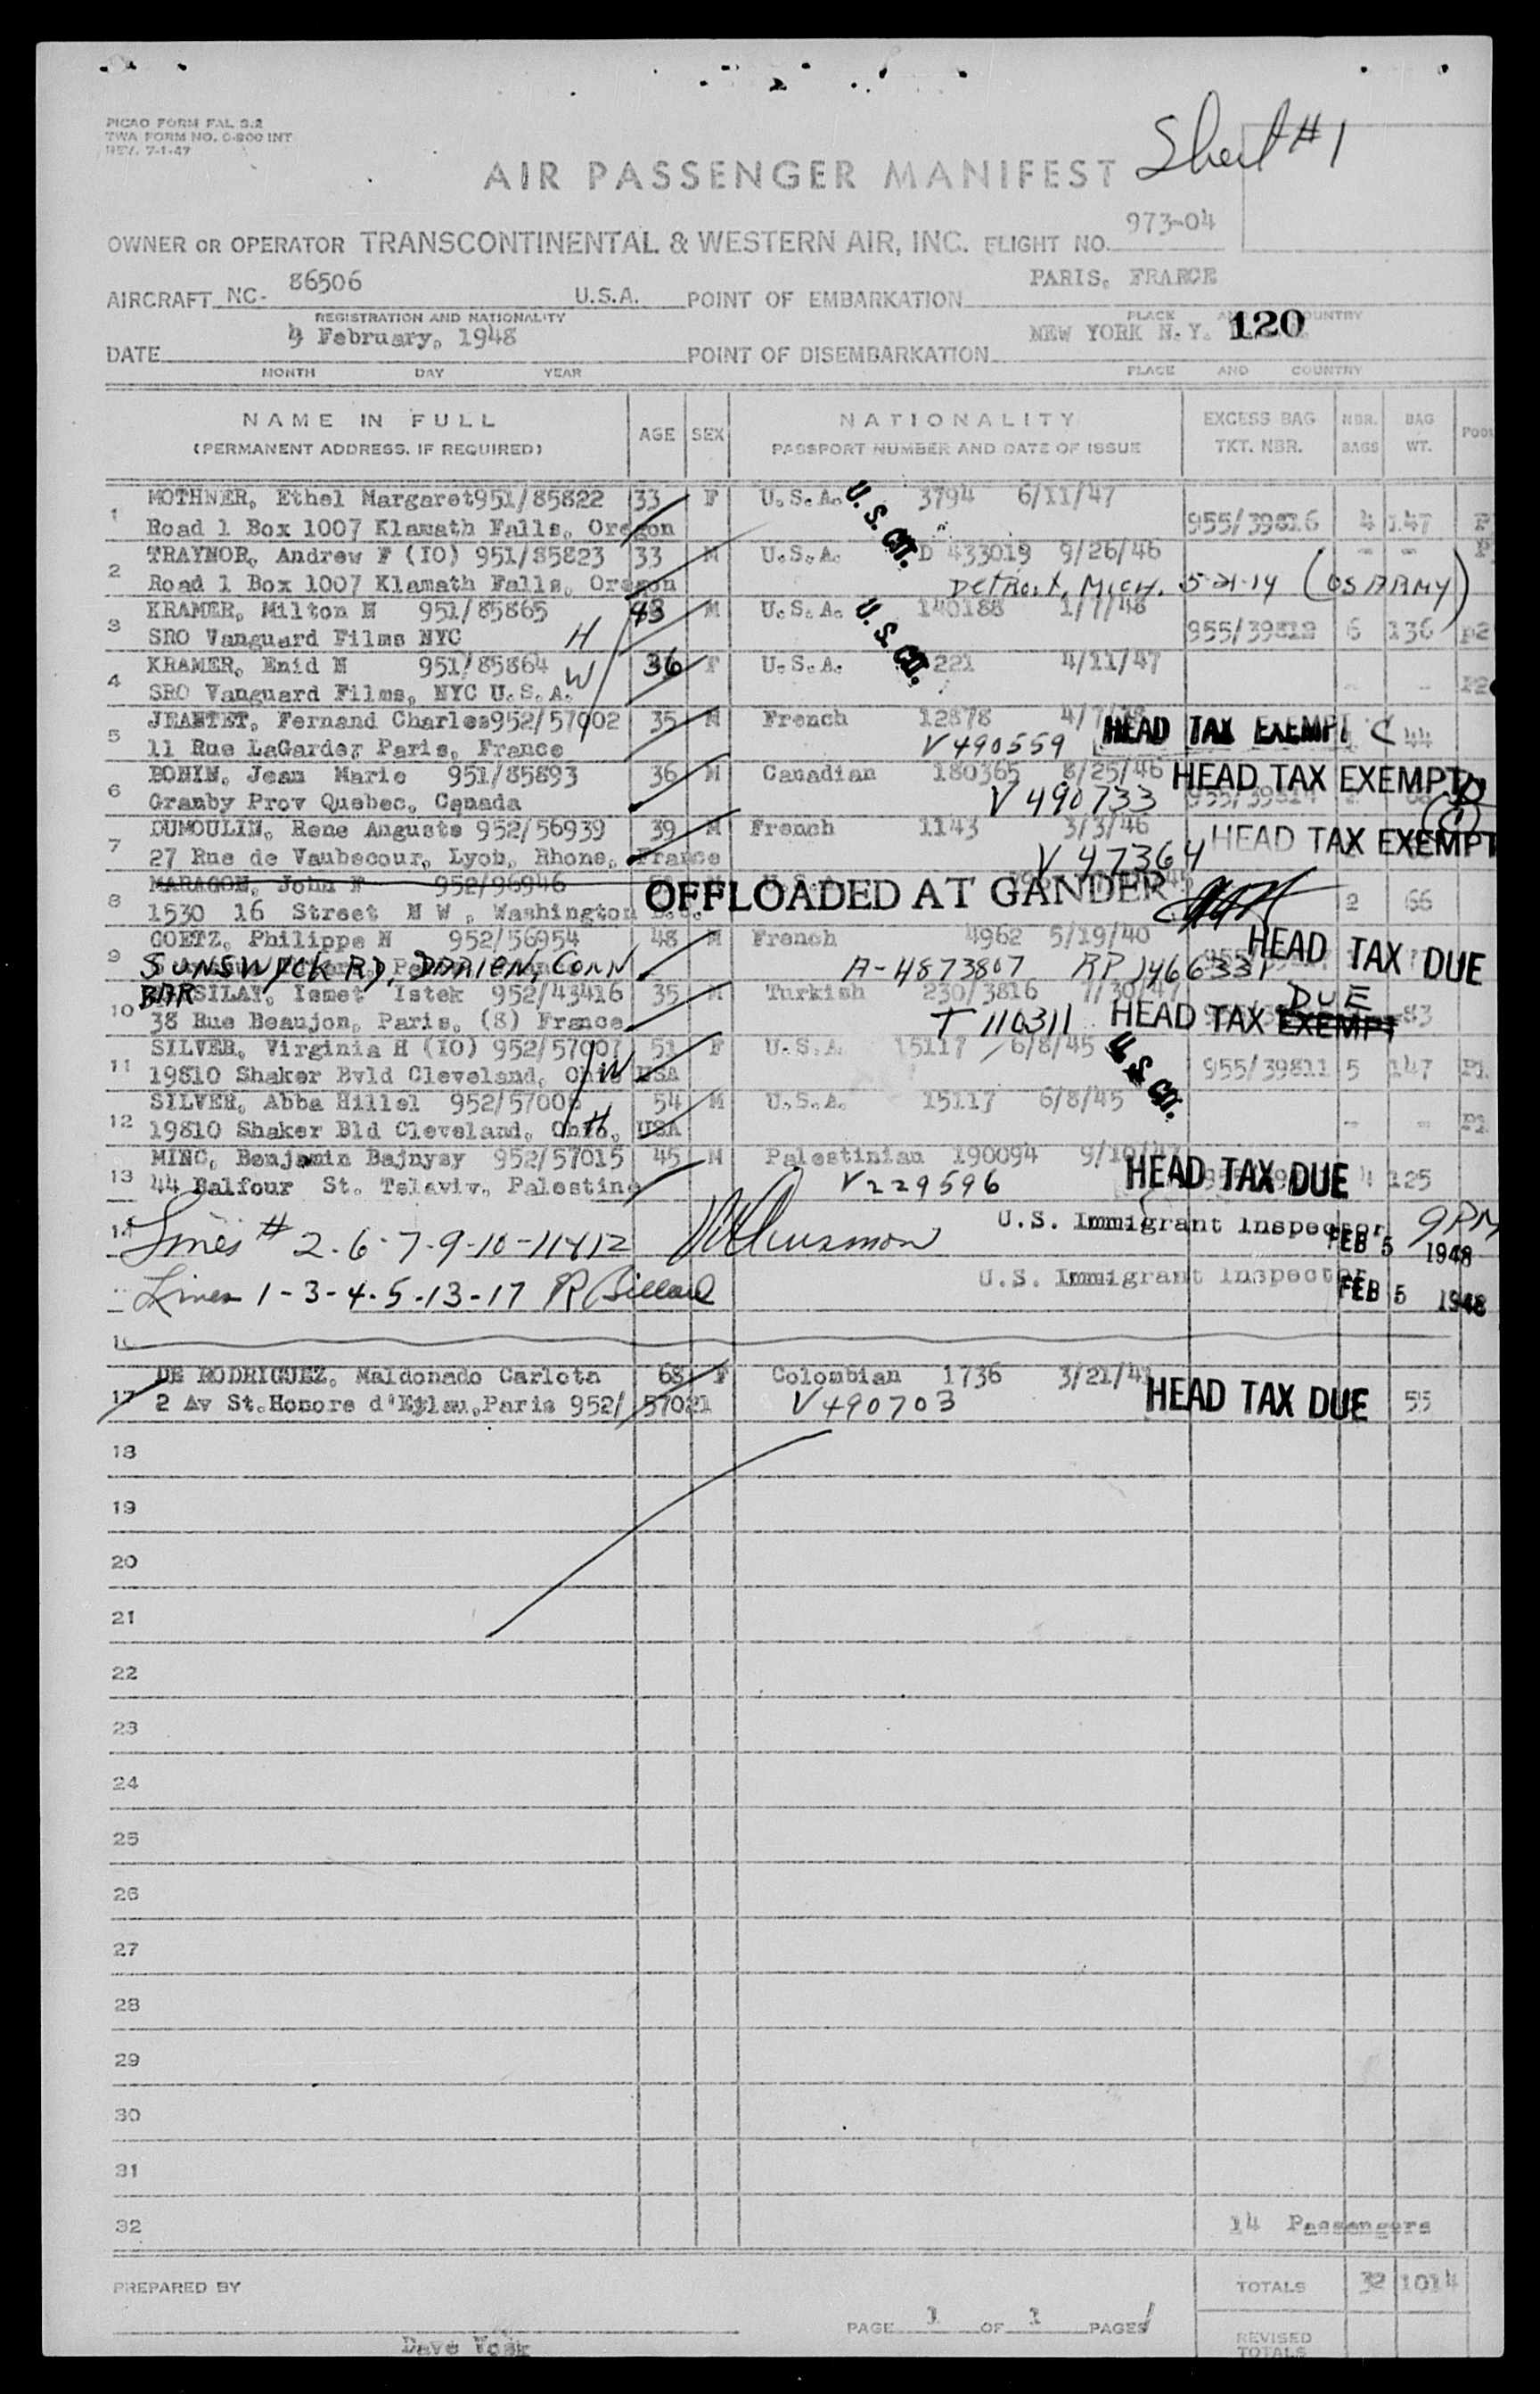 PICAO FORM FAL 3.2
TWA FORM NO. 0-800 INT
REV. 7-1-47
Sheet #1
AIR PASSENGER MANIFEST
OWNER OR OPERATOR TRANSCONTINENTAL & WESTERN AIR, INC. FLIGHT NO. 973-04
AIRCRAFT NC- 86506 U.S.A. POINT OF EMBARKATION PARIS, FRANCE
REGISTRATION AND NATIONALITY PLACE AND COUNTRY
DATE 4 February, 1948 POINT OF DISEMBARKATION NEW YORK N.Y. 120
MONTH DAY YEAR PLACE AND COUNTRY
NAME IN FULL AGE SEX NATIONALITY EXCESS BAG NBR. BAG
(PERMANENT ADDRESS, IF REQUIRED) PASSPORT NUMBER AND DATE OF ISSUE TKT. NBR. BAGS WT.
1 MOTHNER, Ethel Margaret 951/85822 33 F U.S.A. 3794 6/11/47 U.S. CIT.
Road 1 Box 1007 Klamath Falls, Oregon 955/39816 4 147 P
2 TRAYNOR, Andrew F (IO) 951/85823 33 M U.S.A. D 433019 9/26/46 - - P
Road 1 Box 1007 Klamath Falls, Oregon Detroit, Mich. 5-21-14 (US ARMY)
3 KRAMER, Milton N 951/85865 43 M U.S.A. 140188 1/7/48 U.S. CIT.
SRO Vanguard Films NYC H 955/39812 6 136 P2
4 KRAMER, Enid N 951/85864 W 36 F U.S.A. 221 4/11/47
SRO Vanguard Films, NYC U.S.A. - - P2
5 JEANTET, Fernand Charles 952/57002 35 M French 12878 4/7/ HEAD TAX EXEMPT C 44
11 Rue LaGarder Paris, France V490559
6 BONIN, Jean Marie 951/85893 36 M Canadian 180365 8/25/46 HEAD TAX EXEMPT
Granby Prov Quebec, Canada V490733
7 DUMOULIN, Rene Auguste 952/56939 39 M French 1143 3/3/46 HEAD TAX EXEMPT
27 Rue de Vaubecour, Lyob, Rhone, France V47364
8 MARAGON, John F 952/96946 OFFLOADED AT GANDER
1530 16 Street N W, Washington D.C. 2 66
9 GOETZ, Philippe N 952/56954 48 M French 4962 5/19/40 HEAD TAX DUE
SUNSWYCK RD, DARIEN, CONN A-4873807 RP 1466331
10 BAR SILAY, Ismet Istek 952/43416 35 M Turkish 230/3816 7/30/47 DUE
38 Rue Beaujon, Paris, (8) France T 110311 HEAD TAX EXEMPT 83
11 SILVER, Virginia H (IO) 952/57007 51 F U.S.A. 15117 6/8/45 U.S. CIT.
19810 Shaker Bvld Cleveland, Ohio W USA 955/39811 5 147 P1
12 SILVER, Abba Hillel 952/57006 54 M U.S.A. 15117 6/8/45
19810 Shaker Bld Cleveland, Ohio, H USA - - P1
13 MINC, Benjamin Bajnysy 952/57015 45 M Palestinian 190094 9/10/47 HEAD TAX DUE
44 Balfour St. Telaviv, Palestine V229596 4 125
14 Lines # 2-6-7-9-10-11&12 U.S. Immigrant Inspector FEB 5 1948 9PM
Lines 1-3-4-5-13-17 U.S. Immigrant Inspector FEB 5 1948
16
17 DE RODRIGUEZ, Maldonado Carlota 68 F Colombian 1736 3/21/41 HEAD TAX DUE
2 Av St.Honore d'Eylau,Paris 952/57021 V490703 55
18
19
20
21
22
23
24
25
26
27
28
29
30
31
32 14 Passengers
PREPARED BY TOTALS 32 1014
PAGE 1 OF 1 PAGES
REVISED
TOTALS
Dave Vosk